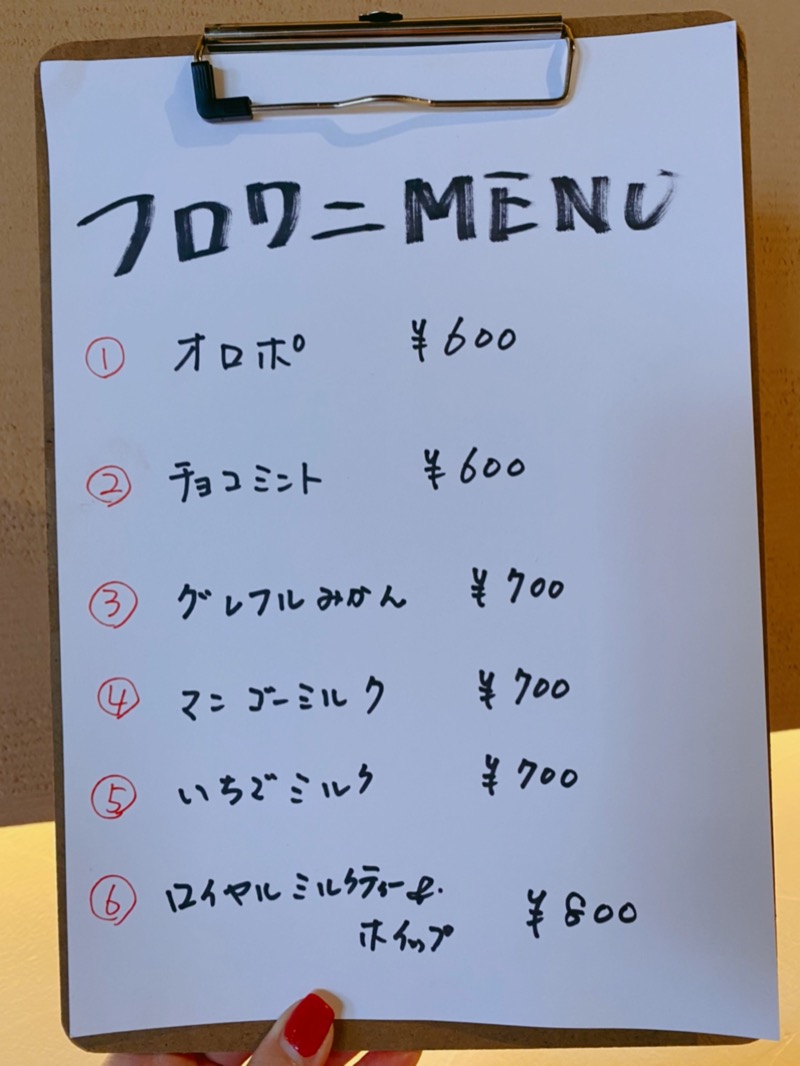 フロワニMENU
① オロポ ¥600
② チョコミント ¥600
③ グレフルみかん ¥700
④ マンゴーミルク ¥700
⑤ いちごミルク ¥700
⑥ ロイヤルミルクティー& ¥800
ホイップ